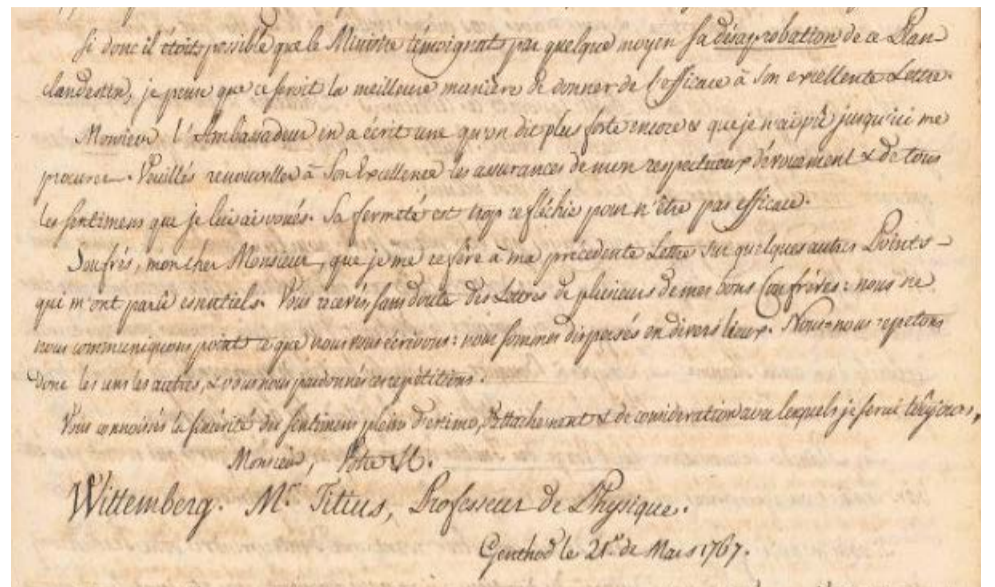 Si donc il étoit possible que le Ministre témoignat par quelque moyen sa disaprobation de ce Plan
clandestin, je pense que ce seroit la meilleure manière de donner de l'efficace à son excellente Lettre.
Monsieur l'Ambassadeur en a écrit une qu'on dit plus forte encore & que je n'ai pû jusqu'ici me
procurer. Veuillés renouveller à Son Excellence les assurances de mon respectueux dévouement & de tous
les sentimens que je lui ai voués. Sa fermeté est trop refléchie pour n'être pas efficace.
Soufrés, mon cher Monsieur, que je me refère à ma précédente Lettre sur quelques autres Points
qui m'ont parû essentiels. Vous recevés sans doute des Lettres de plusieurs de mes bons Confrères: nous ne
nous communiquons point ce que nous vous écrivons: nous sommes dispersés en divers lieux. Nous nous repetons
donc les uns les autres, & vous nous pardonnés ces repétitions.
Vous connoissés la sincérité des sentimens pleins d'estime, d'attachement & de consideration avec lesquels je serai toûjours,
Monsieur, Votre &c.
Wittemberg. Mr. Titius, Professeur de Physique.
Genthod le 21e. de Mars 1767.